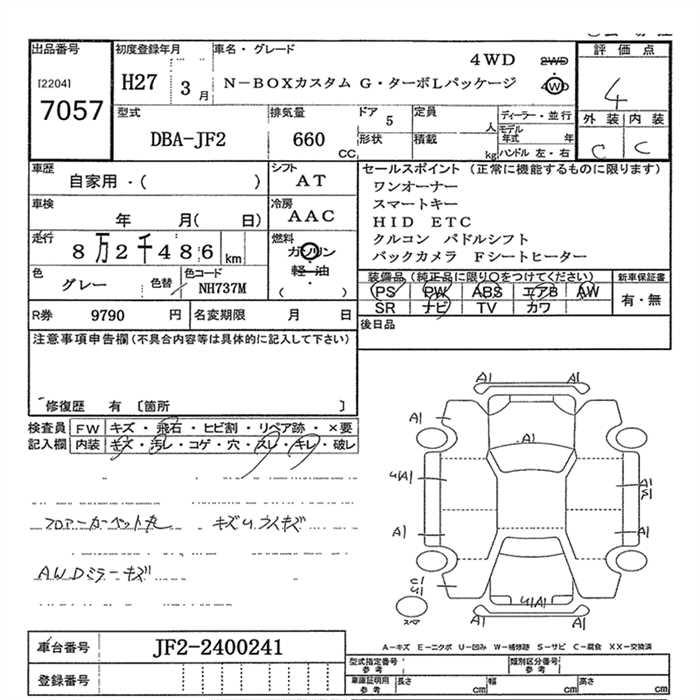 出品番号 初度登録年月 車名・グレード 評価点
[2204] H27 3月 4WD 2WD
7057 N-BOXカスタム G・ターボLパッケージ 4WD 4
型式 排気量 ドア 5 定員 人 ディーラー・並行 外装 内装
DBA-JF2 660 CC 形状 積載 kg モデル年式 年 C C
ハンドル 左・右
車歴 シフト セールスポイント (正常に機能するものに限ります)
自家用・( ) AT ワンオーナー
車検 冷房 スマートキー
年 月( 日) AAC HID ETC
走行 燃料 クルコン パドルシフト
8万2千486 km ガソリン バックカメラ Fシートヒーター
色 色替 色コード 軽・油 装備品(純正品に限り○をつけてください) 新車保証書
グレー NH737M ( ・ ) PS PW ABS エアB AW 有・無
SR ナビ TV カワ
R券 9790 円 名変期限 月 日 後日品
注意事項申告欄(不具合内容等は具体的に記入して下さい)
修復歴 有 〔箇所 〕
検査員 FW キズ・飛石・ヒビ割・リペア跡・×要
記入欄 内装 キズ・汚レ・コゲ・穴・スレ・キレ・破レ
A1 A1
A1
A1
A1
A1 A1
フロアーカーペット
AWDミラーキズ
スペア
A1 A1
A―キズ E―ニクボ U―凹み W―補修跡 S―サビ C―腐食 XX―交換済
車台番号 JF2-2400241
登録番号
型式指定番号 参考 類別区分番号 参考
車庫証明用 参考 長さ cm 幅 cm 高さ cm